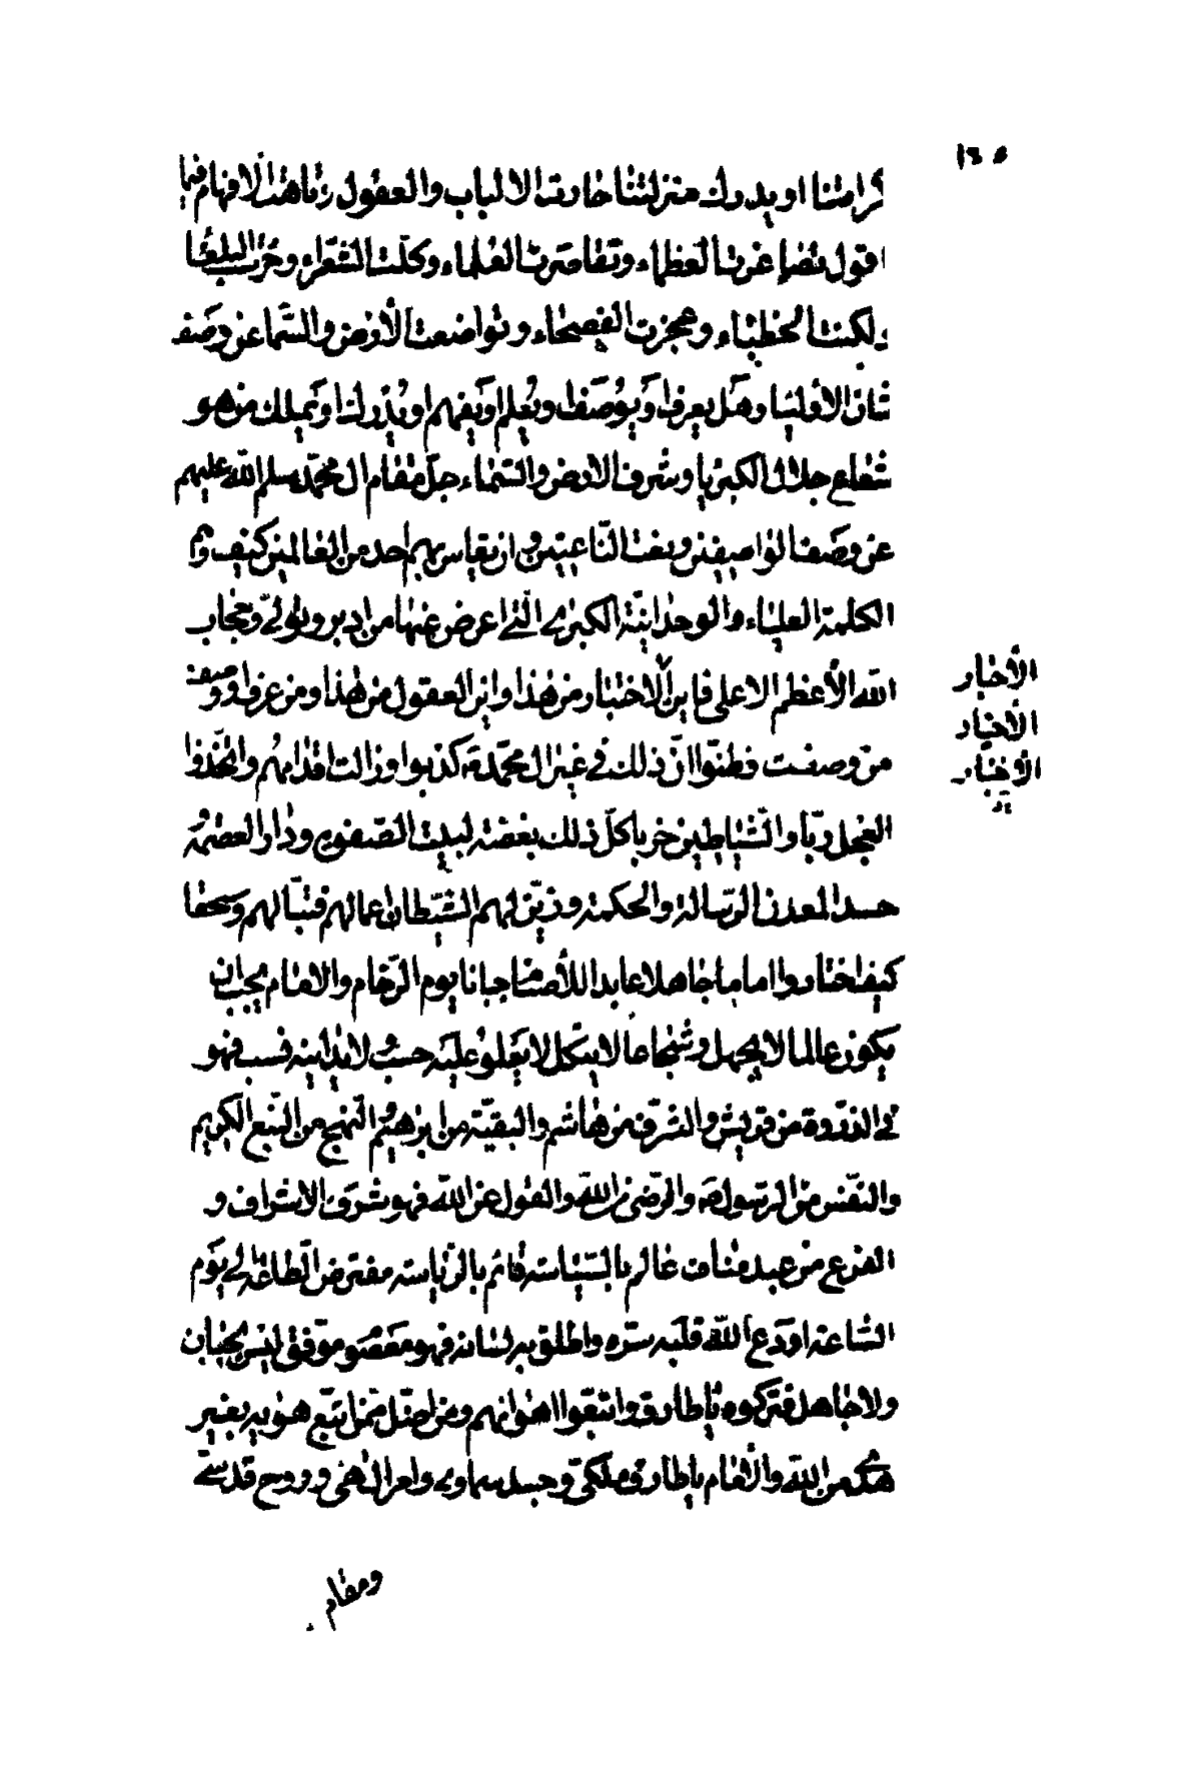 ١٦٥
كرامتنا او يدرك منزلتنا حارت الالباب والعقول وتاهت الافهام فيما
اقول تصاغرت العظماء وتقاصرت العلماء وكلّت الشعراء وخرست البلغاء
ولكنت الخطباء وعجزت الفصحاء وتواضعت الأرض والسّماء عن وصف
شان الأولياء وهل يعرف او يوصف او يعلم او يفهم او يدرك او يملك من هو
شعاع جلال الكبرياء وشرف الارض والسّماء جلّ مقام ال محمّد سلم الله عليهم
عن وصف الواصفين ونعت النّاعتين وان يقاس بهم احد من العالمين كيف وهم
الكلمة العلياء والوحدانيّة الكبرى الّتى اعرض عنها من ادبر وتولّى وحجاب
الله الأعظم الاعلى فاين الاختيار من هذا واين العقول من هذا ومن عرف او وصف
من وصفت فظنّوا انّ ذلك فى غير ال محمّدﷺ كذبوا وزالت اقدامهم واتّخذوا
العجل ربّا والشّياطين حزبا كلّ ذلك بغضة لبيت الصّفوه ودار العصمة
حسدا لمعدن الرّسالة والحكمة وزيّن لهم الشّيطان اعمالهم فتبّا لهم وسحقا
كيف اختاروا اماما جاهلا عابدا للأصنام جبانا يوم الزّحام والامام يجب ان
يكون عالما لا يجهل وشجاعا لا ينكل لا يعلو عليه حسب ولا يدانيه نسب فهو
فى الذّروة من قريش والشّرف من هاشم والبقيّة من ابرهيم والنّهج من النّبع الكريم
والنّفس من الرّسولﷺ والرّضى من الله والقول عن الله فهو شرف الاشراف و
الفرع من عبد مناف عالم بالسّياسة قائم بالرّياسة مفترض الطّاعة الى يوم
السّاعة اودع الله قلبه سرّه واطلق به لسانه فهو معصوم موفّق ليس بجبان
ولا جاهل فتركوه يا طارق واتّبعوا اهوائهم ومن اضلّ ممّن اتّبع هويه بغير
هدى من الله والأمام يا طارق ملكىّ وجسد سماوى وامر الهىّ وروح قدسىّ
ومقام
الأخبار
الأحبار
الأختيار